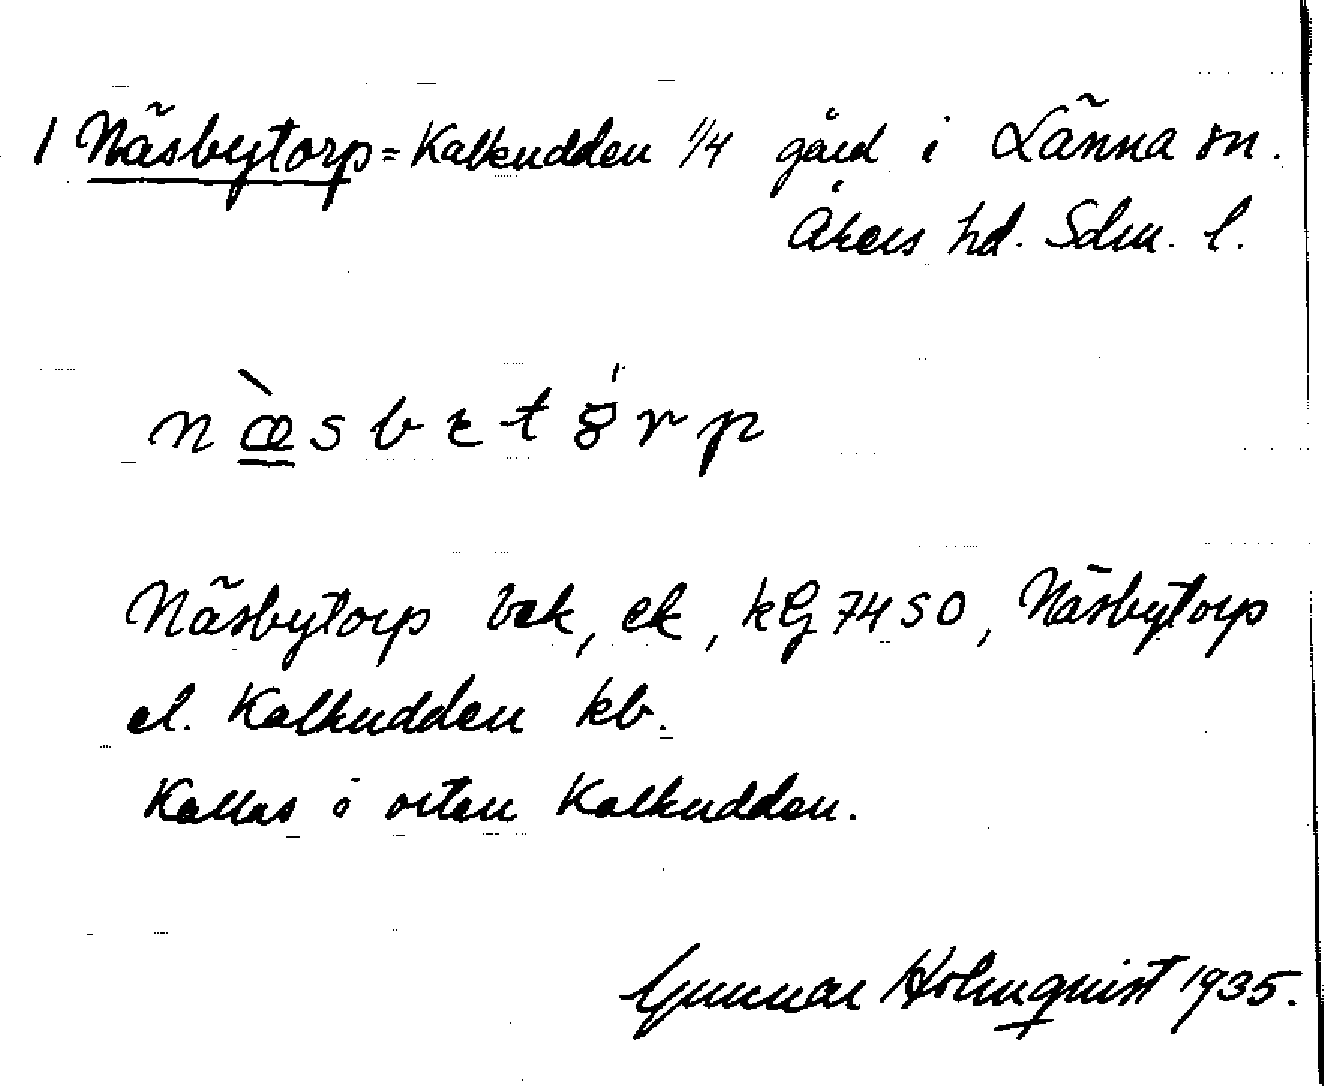 1 Näsbytorp = Kalkudden 1/4 gård i Länna sn.
Åkers hd. Sdm. l.
næ̀sbetȯrp
Näsbytorp bek, ek, kG 74 SO, Näsbytorp
el. Kalkudden kb.
Kallas i orten Kalkudden.
Gunnar Holmqvist 1935.